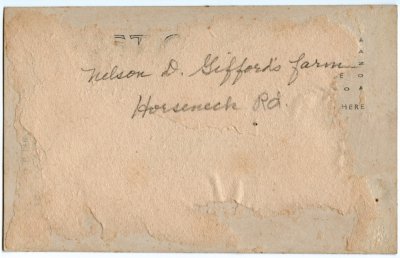 Nelson D. Gifford's farm
Horseneck Rd.
HERE